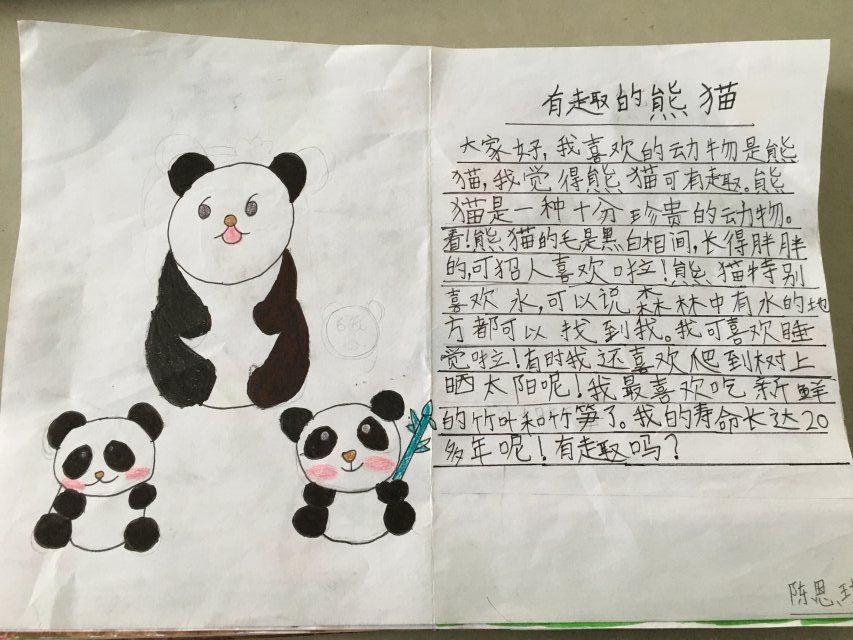 有趣的熊猫
大家好,我喜欢的动物是熊
猫,我觉得熊猫可有趣。熊
猫是一种十分珍贵的动物。
看!熊猫的毛是黑白相间,长得胖胖
的,可招人喜欢啦!熊猫特别
喜欢水,可以说森林中有水的地
方都可以找到我。我可喜欢睡
觉啦!有时我还喜欢爬到树上
晒太阳呢!我最喜欢吃新鲜
的竹叶和竹笋了。我的寿命长达20
多年呢!有趣吗?
陈恩